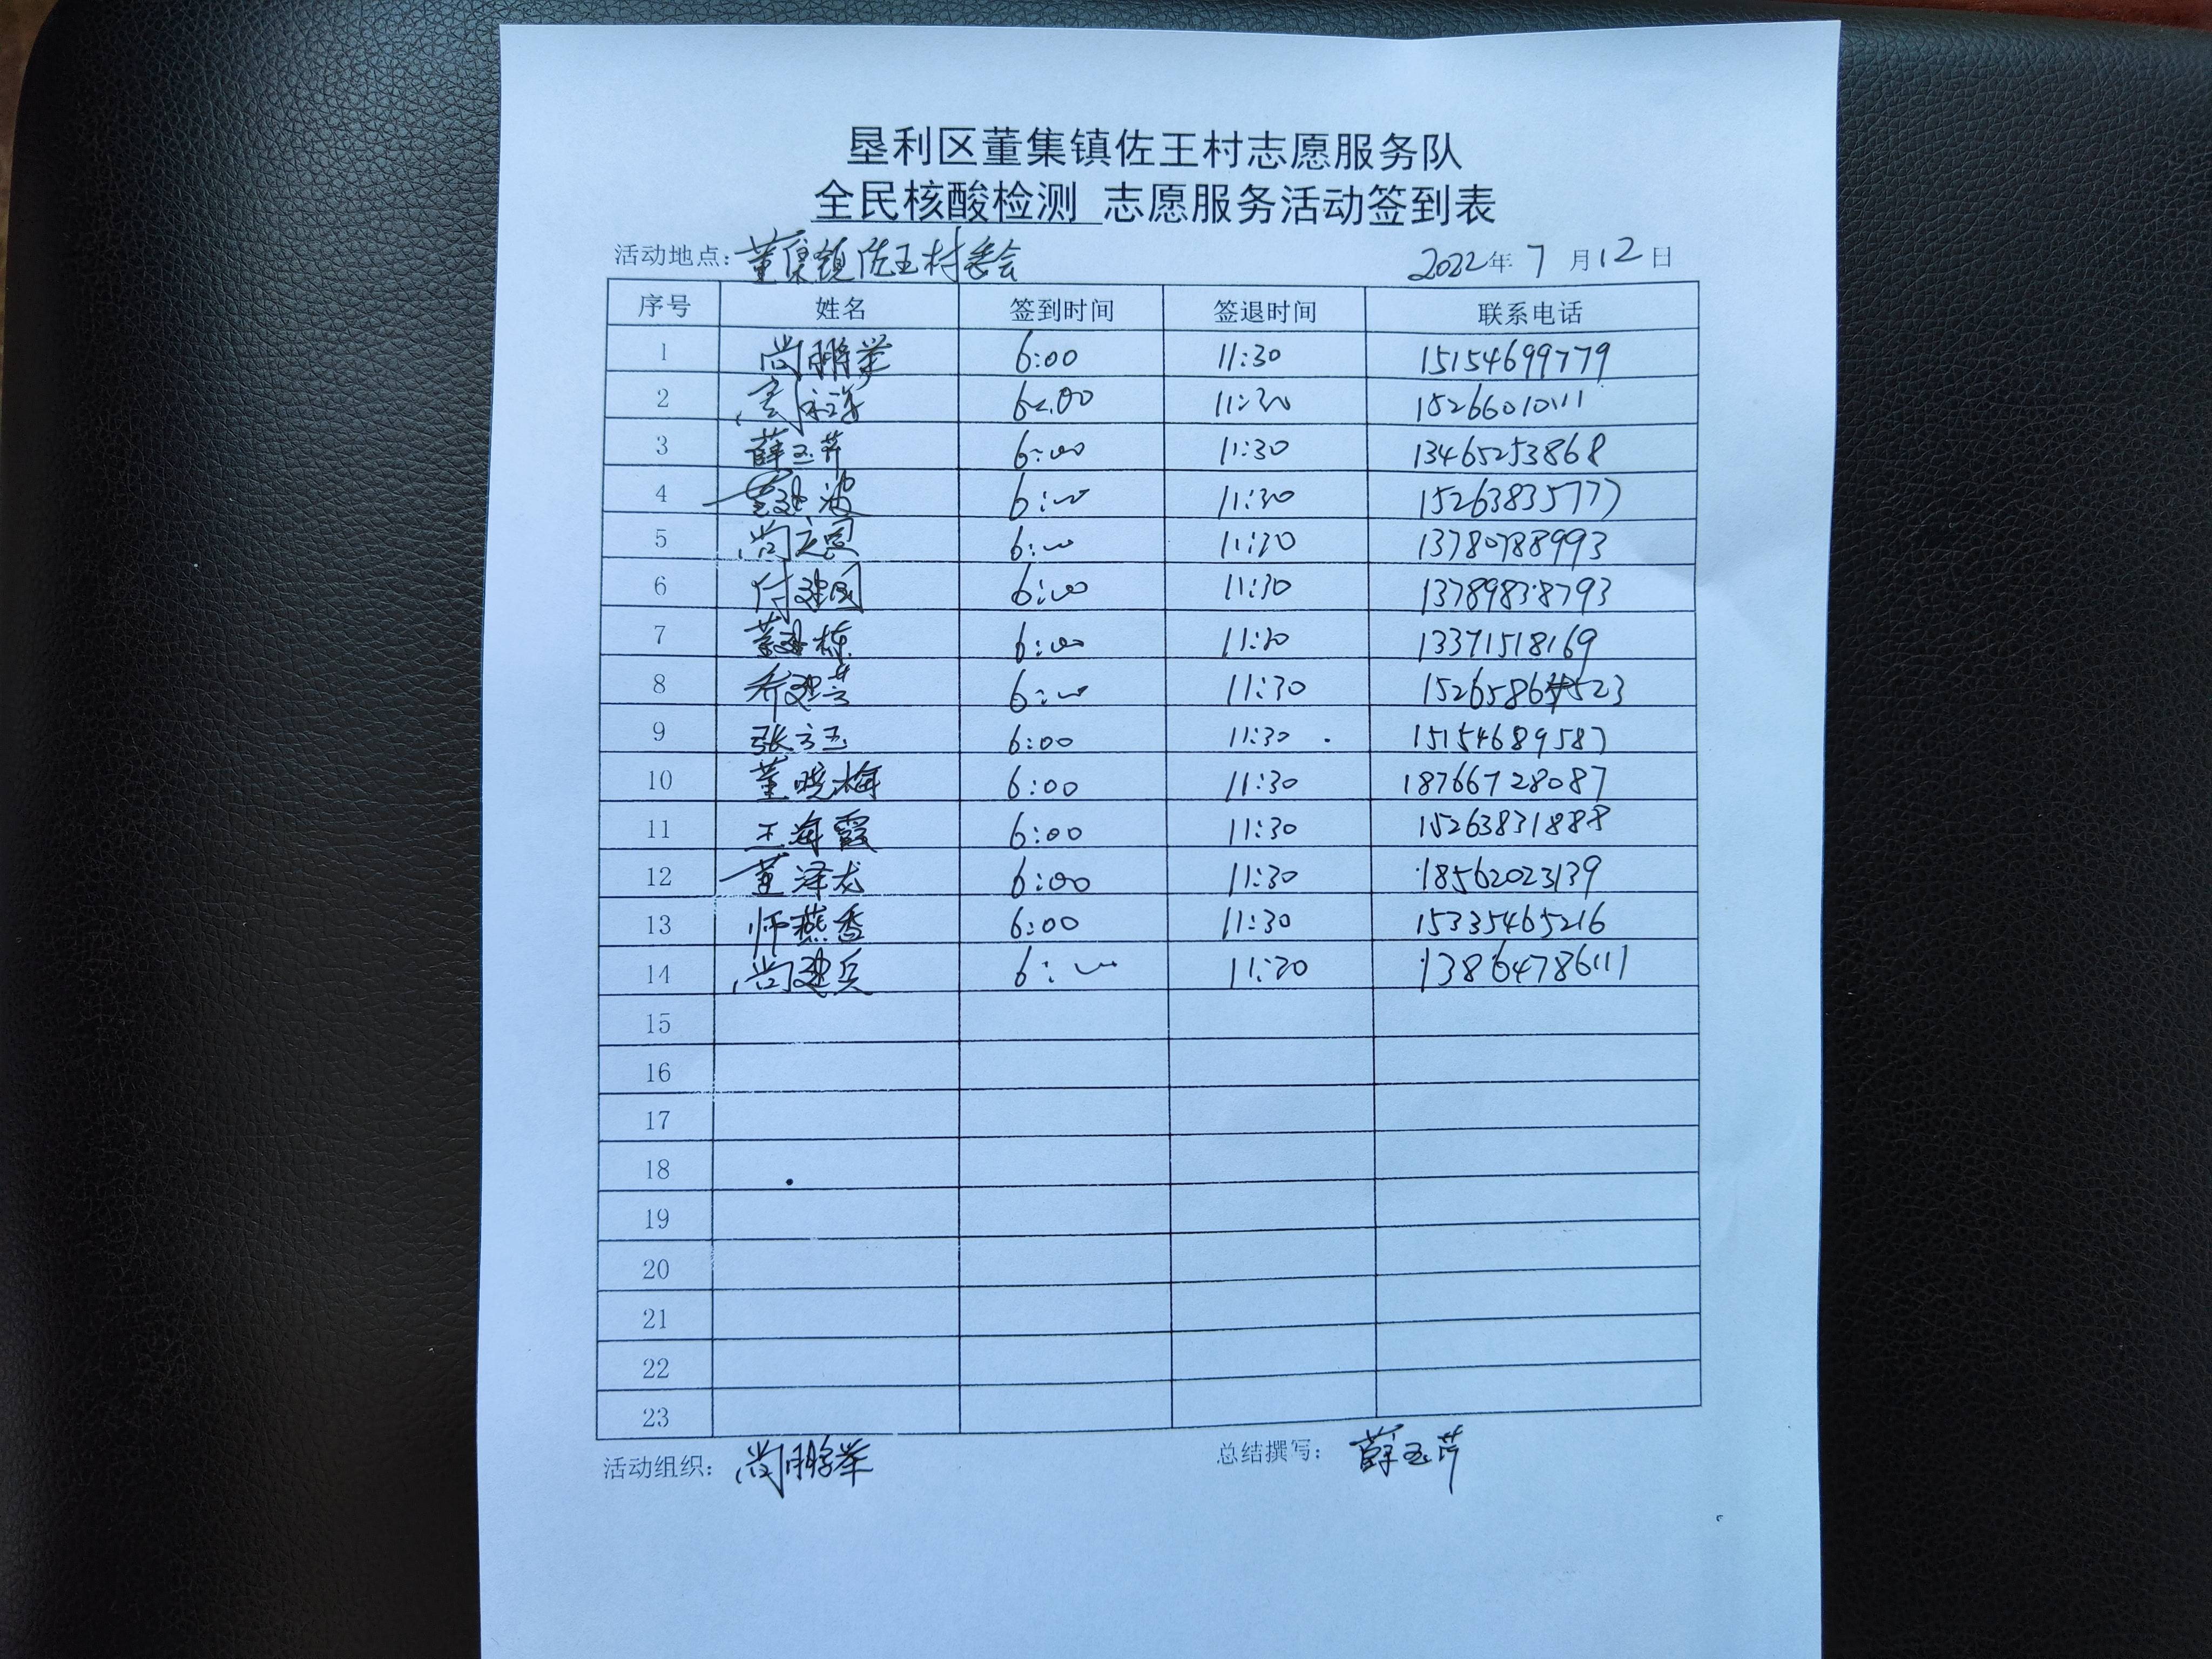 垦利区董集镇佐王村志愿服务队
全民核酸检测 志愿服务活动签到表
活动地点：董集镇佐王村委会 2022年7月12日
序号 姓名 签到时间 签退时间 联系电话
1 尚鹏举 6:00 11:30 15154699779
2 6:00 11:30 15266010111
3 薛玉芹 6:00 11:30 13465253868
4 6:00 11:30 15263835777
5 6:00 11:30 13780788993
6 付建国 6:00 11:30 13789838793
7 董建栋 6:00 11:30 13371518169
8 乔建芳 6:00 11:30
9 张方玉 6:00 11:30 15154689587
10 董晓梅 6:00 11:30 18766728087
11 王海霞 6:00 11:30 15263831888
12 董泽龙 6:00 11:30 18562023139
13 师燕香 6:00 11:30 15335465216
14 尚建兵 6:00 11:30 13864786111
15
16
17
18
19
20
21
22
23
活动组织：尚鹏举 总结撰写：薛玉芹